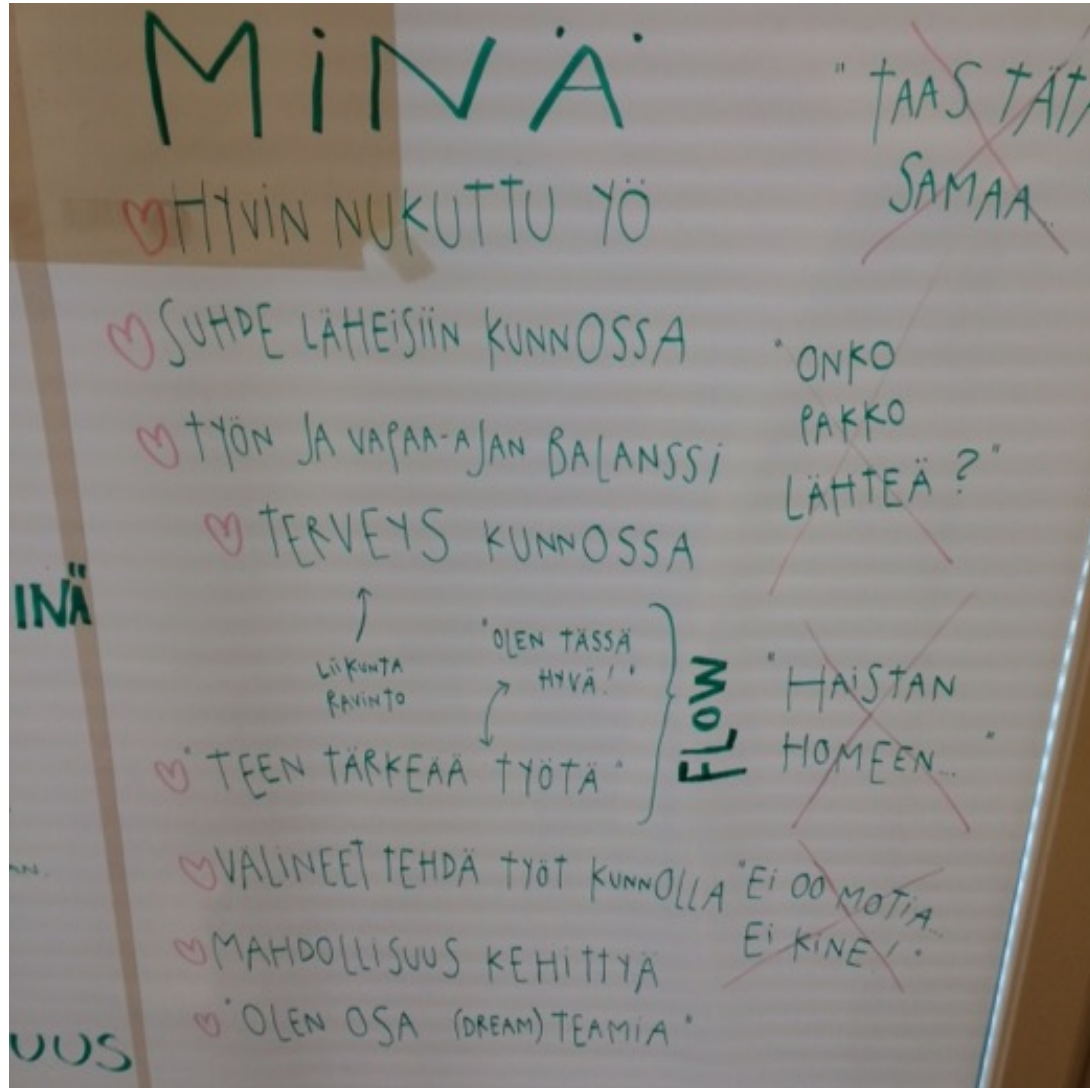 MINÄ
HYVIN NUKUTTU YÖ
SUHDE LÄHEISIIN KUNNOSSA
TYÖN JA VAPAA-AJAN BALANSSI
TERVEYS KUNNOSSA
LIIKUNTA
RAVINTO
"OLEN TÄSSÄ
HYVÄ!"
"TEEN TÄRKEÄÄ TYÖTÄ"
FLOW
VÄLINEET TEHDÄ TYÖT KUNNOLLA
MAHDOLLISUUS KEHITTYÄ
"OLEN OSA (DREAM) TEAMIA"
"TAAS TÄTÄ
SAMAA...
"ONKO
PAKKO
LÄHTEÄ?"
"HAISTAN
HOMEEN..."
"EI OO MOTIA...
EI KINE!"
INÄ
UUS